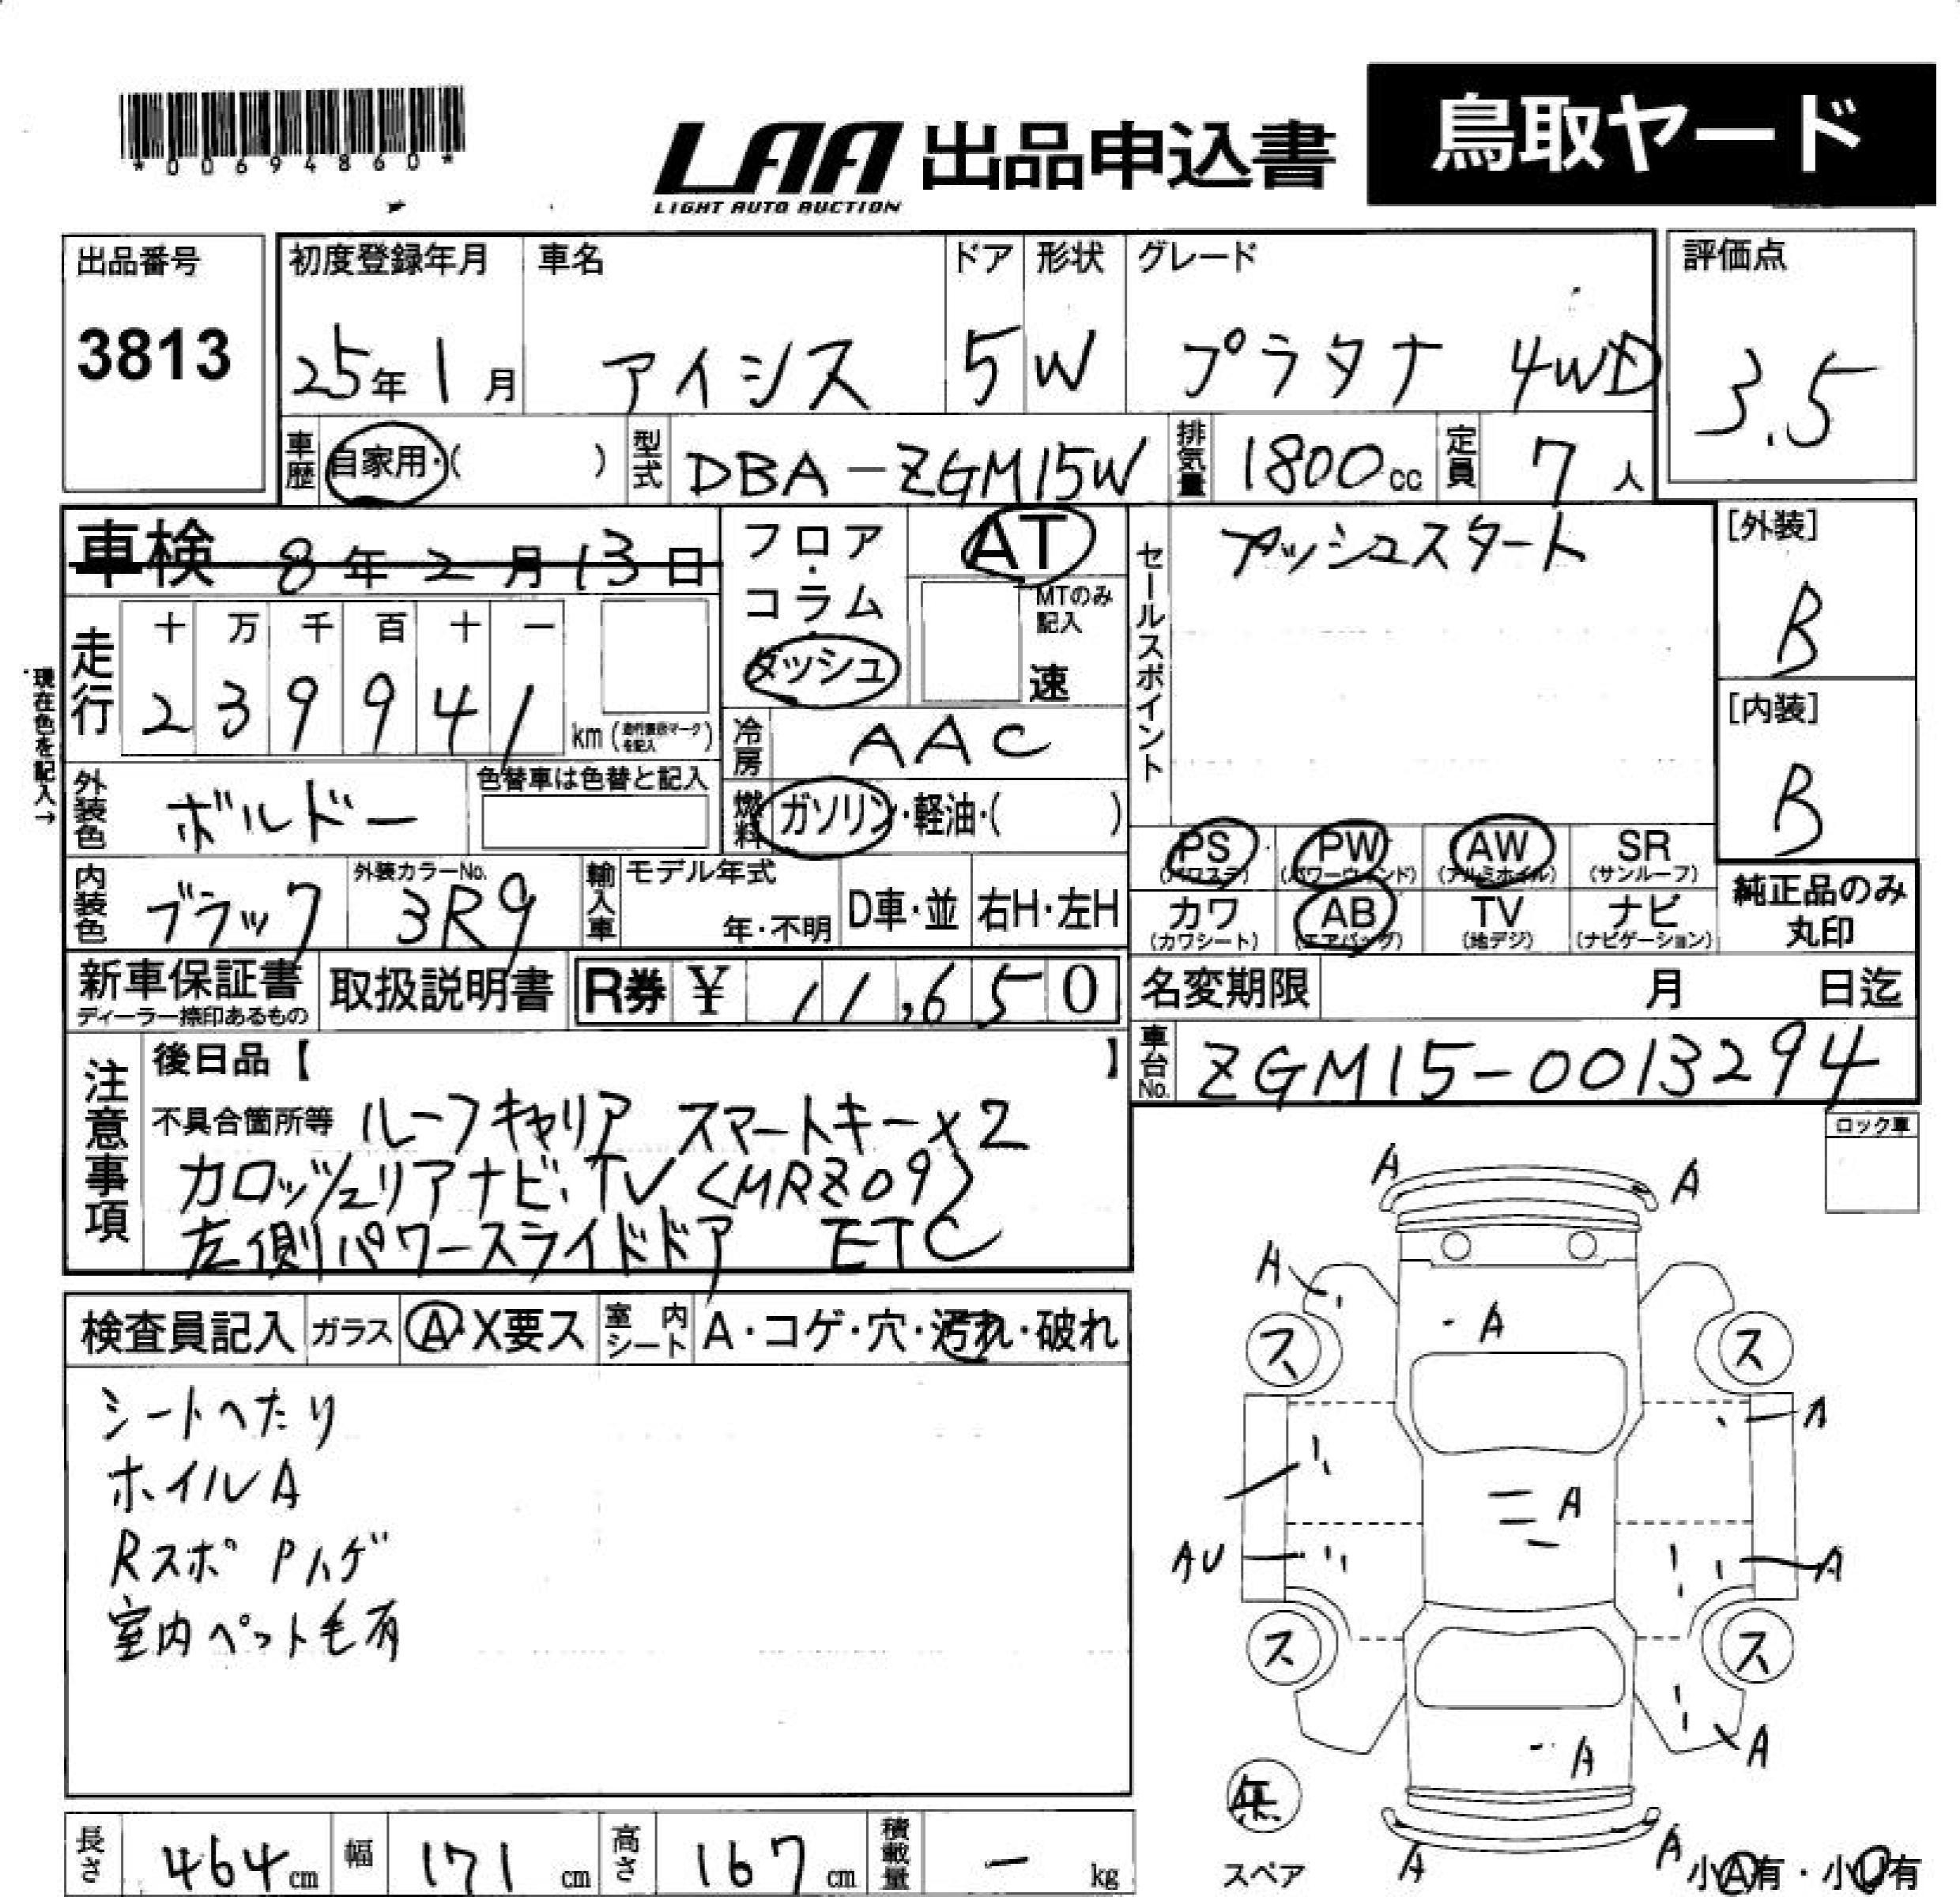 *00694860*
LAA 出品申込書 鳥取ヤード
LIGHT AUTO AUCTION
出品番号 初度登録年月 車名 ドア 形状 グレード 評価点
3813 25年 1月 アイシス 5 W プラタナ 4WD 3.5
車歴 自家用・( ) 型式 DBA-ZGM15W 排気量 1800cc 定員 7人
車検 8年2月13日 フロア・コラム・ダッシュ AT
MTのみ記入 速
セールスポイント プッシュスタート
[外装] B
[内装] B
現在色を記入→
走行 十 万 千 百 十 一
2 3 9 9 4 1 km
冷房 AAC
外装色 ボルドー 色替車は色替と記入
燃料 ガソリン・軽油・( )
PS PW AW SR
(パワステ) (パワーウィンド) (アルミホイル) (サンルーフ)
カワ AB TV ナビ
(カワシート) (エアバッグ) (地デジ) (ナビゲーション)
純正品のみ
丸印
内装色 ブラック 外装カラーNo. 3R9 輸入車 モデル年式 年・不明 D車・並 右H・左H
新車保証書 取扱説明書 R券 ¥ 11,650
ディーラー捺印あるもの
名変期限 月 日迄
車台No. ZGM15-0013294
注意事項 後日品【 】
不具合箇所等 ルーフキャリア スマートキー×2
カロッツェリアナビ、TV<MRZ09>
左側パワースライドドア ETC
ロック車
検査員記入 ガラス A・X要ス 室内シート A・コゲ・穴・汚れ・破れ
シートへたり
ホイルA
Rスポ Pハゲ
室内ペット毛有
A A
A
A
ス ス
A
A
AU A
ス ス
A
A
無
スペア
A A
小A有・小U有
長さ 464cm 幅 171cm 高さ 167cm 積載量 - kg